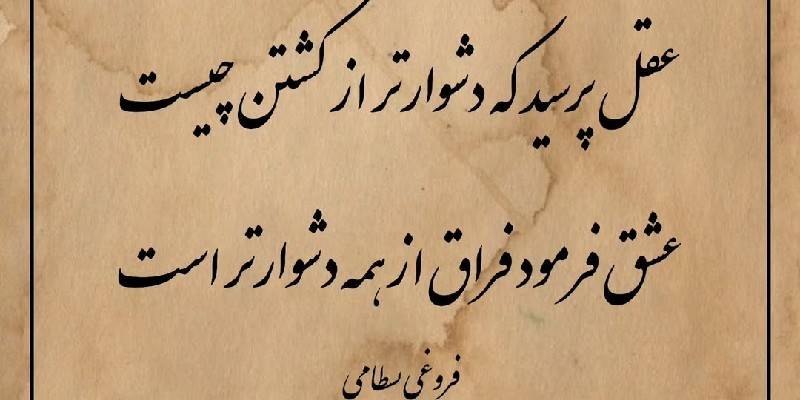 عقل پرسید که دشوارتر از کشتن چیست
عشق فرمود فراق از همه دشوارتر است
فروغی بسطامی